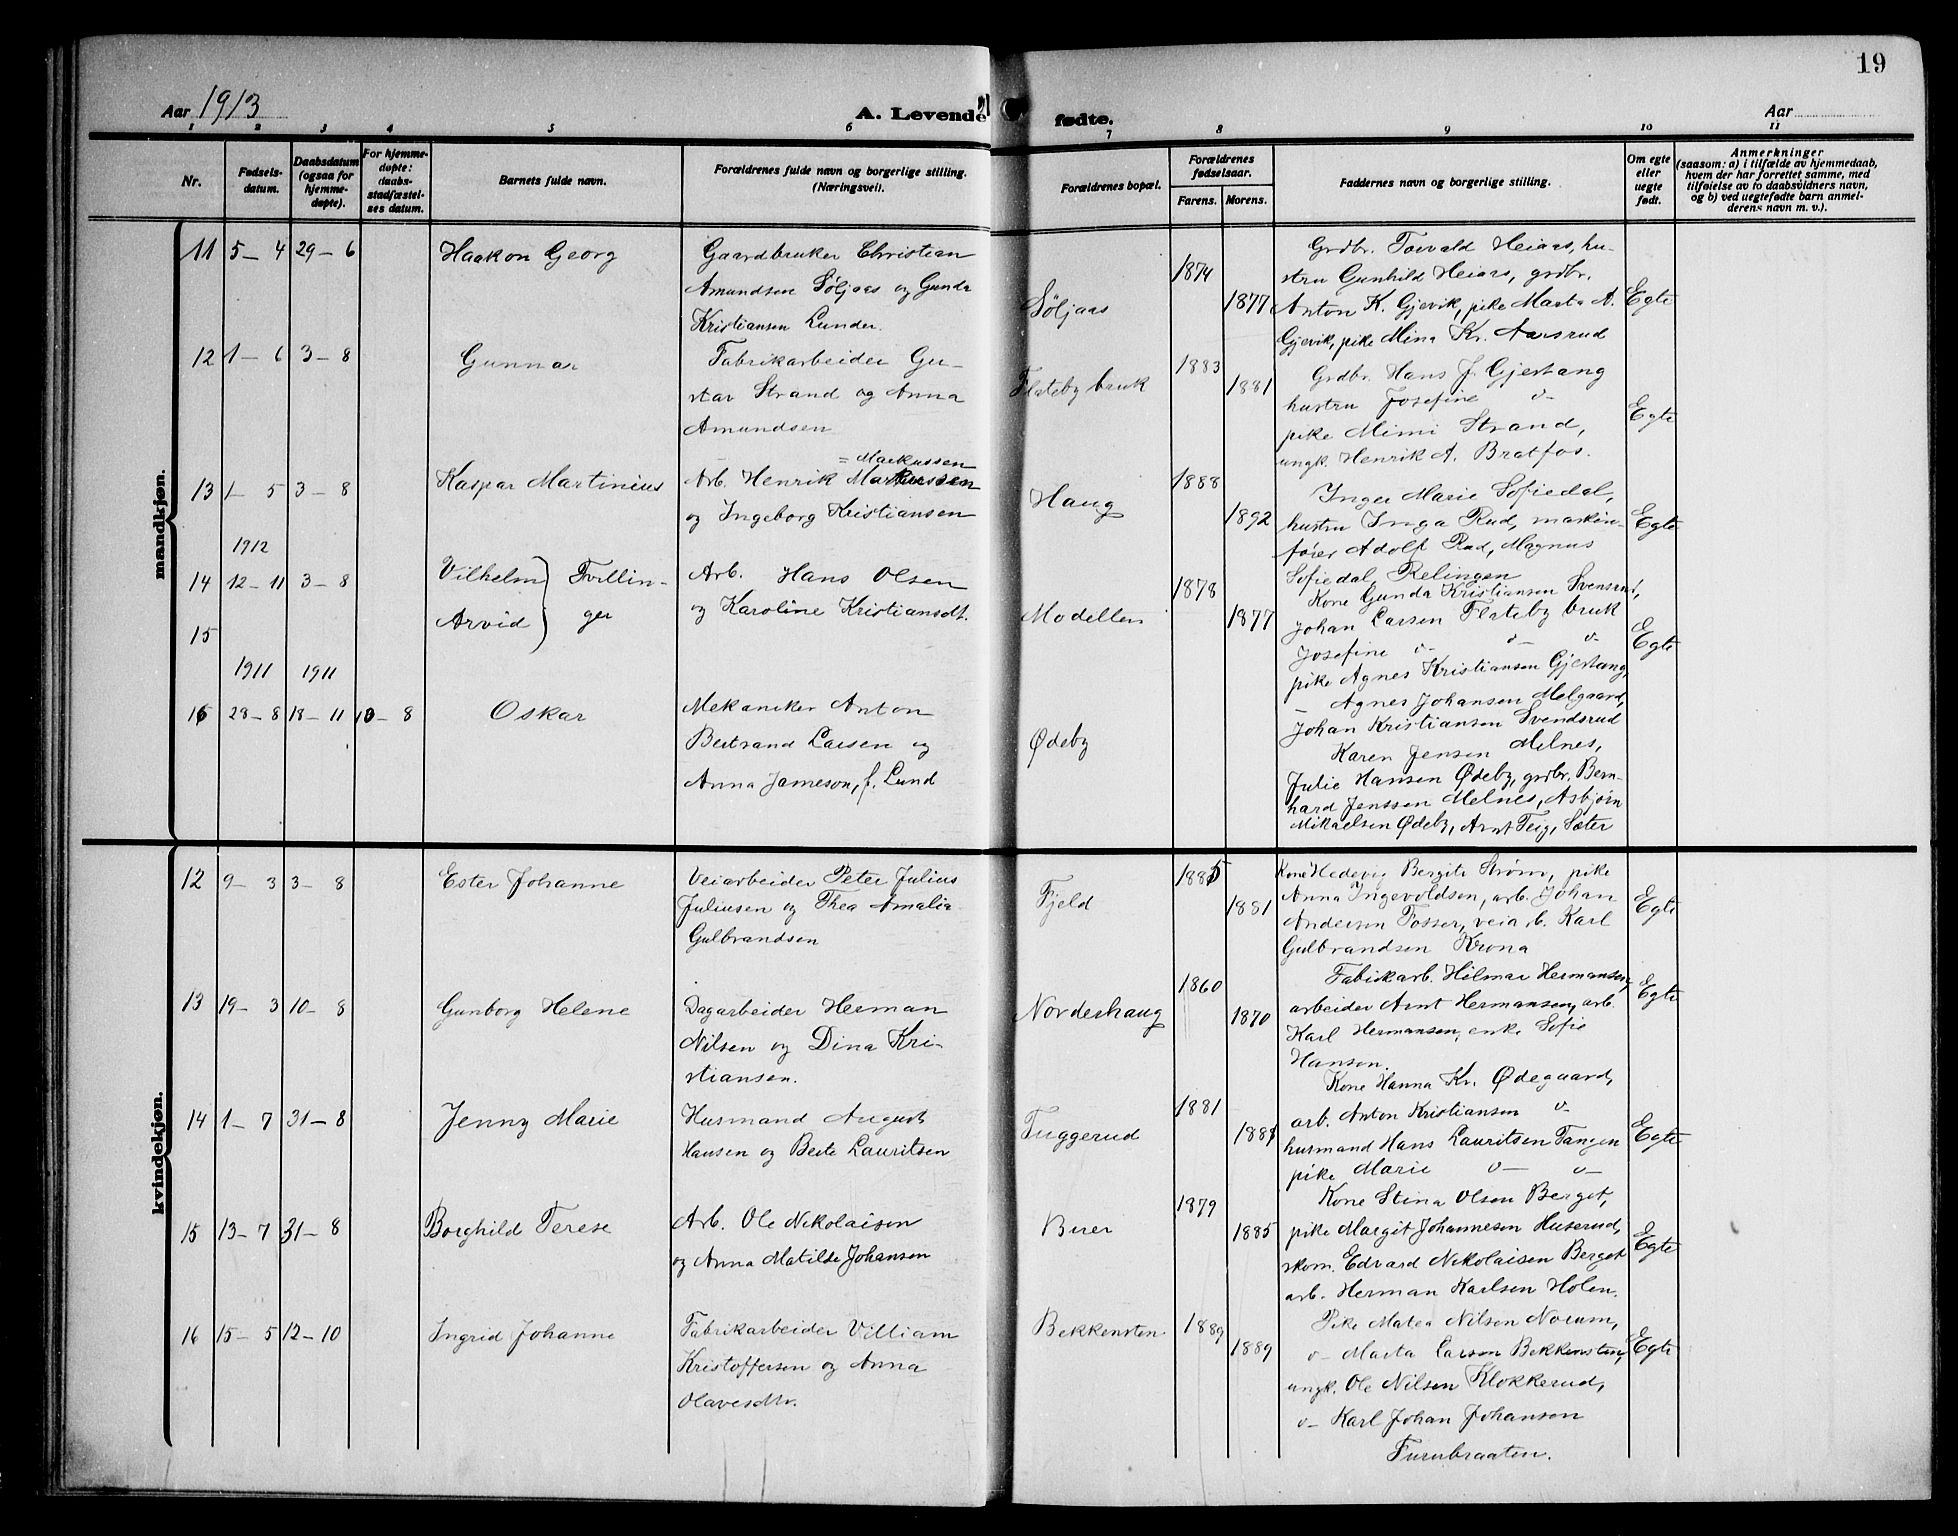 19
Aar 1913
A. Levende fødte.
Aar
1 2 3 4 5 6 7 8 9 10 11
Nr.
Fødsels-
datum.
Daabsdatum
(ogsaa for
hjemme-
døpte).
For hjemme-
døpte:
daabs-
stadfæstel-
ses datum.
Barnets fulde navn.
Forældrenes fulde navn og borgerlige stilling.
(Næringsvei).
Forældrenes bopæl.
Forældrenes
fødselsaar.
Farens. Morens.
Faddernes navn og borgerlige stilling.
Om egte
eller
uegte
født.
Anmerkninger
(saasom: a) i tilfælde av hjemmedaab,
hvem der har forrettet samme, med
tilføielse av to daabsvidners navn,
og b) ved uegtefødte barn anmel-
derens navn m. v.).
mandkjøn.
11 5-4 29-6
Haakon Georg
Gaardbruker Christian
Amundsen Søljaas og Gunda
Kristiansen Lunder.
Søljaas
1874
1877
Grdbr. Torvald Heiaas, hu-
stru Gunhild Heiaas, grdbr.
Anton K. Gjevik, pike Marta A.
Gjevik, pike Mina Kr. Aasrud
Egte
12 1-6 3-8
Gunnar
Fabrikarbeider Gu-
stav Strand og Anna
Amundsen
Flateby bruk
1883
1881
Grdbr. Hans J. Gjeshang
hustru Josefine v-
pike Mimi Strand,
ungk. Henrik A. Bratfos.
Egte
13 1-5 3-8
Kaspar Martinius
= Markussen
Arb. Henrik Markussen
og Ingeborg Kristiansen
Haug
1888
1892
Inger Marie Sofiedal,
hustru Inga Rud, maskin-
fører Adolf Rud, Magnus
Sofiedal, Relingen
Egte
1912
14 12-11 3-8
15
Vilhelm } Tvillin-
Arvid } ger
Arb. Hans Olsen
og Karoline Kristiansdt.
Modellen
1878
1877
Kone Gunda Kristiansen Svensrud,
Johan Larsen Flateby bruk
Josefine v- v-
pike Agnes Kristiansen Gjeshang,
- Agnes Johansen Melgaard,
Johan Kristiansen Svendsrud
Egte
1911 1911
16 28-8 18-11 10-8
Oskar
Mekaniker Anton
Bertrand Larsen og
Anna Jameson, f. Lund
Ødeby
Karen Jensen Melnes,
Julie Hansen Ødeby, grdbr. Bern-
hard Jenssen Melnes, Asbjørn
Mikaelsen Ødeby, Arnt Teig, Sæter
kvindekjøn.
12 9-3 3-8
Ester Johanne
Veiarbeider Peter Julius
Juliusen og Thea Amalie
Gulbrandsen
Fjeld
1885
1881
Kone Hedevig Bergite Strøm, pike
Anna Ingevoldsen, arb. Johan
Andersen Fosser, veia.b. Karl
Gulbrandsen Krona
Egte
13 19-3 10-8
Gunborg Helene
Dagarbeider Herman
Nilsen og Dina Kri-
stiansen.
Norderhaug
1860
1870
Fabrikarb. Hilmar Hermansen,
arbeider Arnt Hermansen, arb.
Karl Hermansen, enke Sofie
Hansen.
Egte
14 1-7 31-8
Jenny Marie
Husmand August
Hansen og Berte Lauritsen
Tuggerud
1881
1881
Kone Hanna Kr. Ødegaard,
arb. Anton Kristiansen v-
husmand Hans Lauritsen Tangen
pike Marie v- v-
Egte
15 13-7 31-8
Borghild Terese
Arb. Ole Nikolaisen
og Anna Matilde Johansen
Buer
1879
1885
Kone Stina Olsen Berget,
pike Margit Johannesen Huserud,
skom. Edvard Nikolaisen Berget
arb. Herman Karlsen Holen.
Egte
16 15-5 12-10
Ingrid Johanne
Fabrikarbeider Villiam
Kristoffersen og Anna
Olavesdtr.
Bekkensten
1889
1889
Pike Matea Nilsen Norum,
v- Marta Larsen Bekkensten,
ungk. Ole Nilsen Klokkerud,
v- Karl Johan Johansen
Furubraaten.
Egte